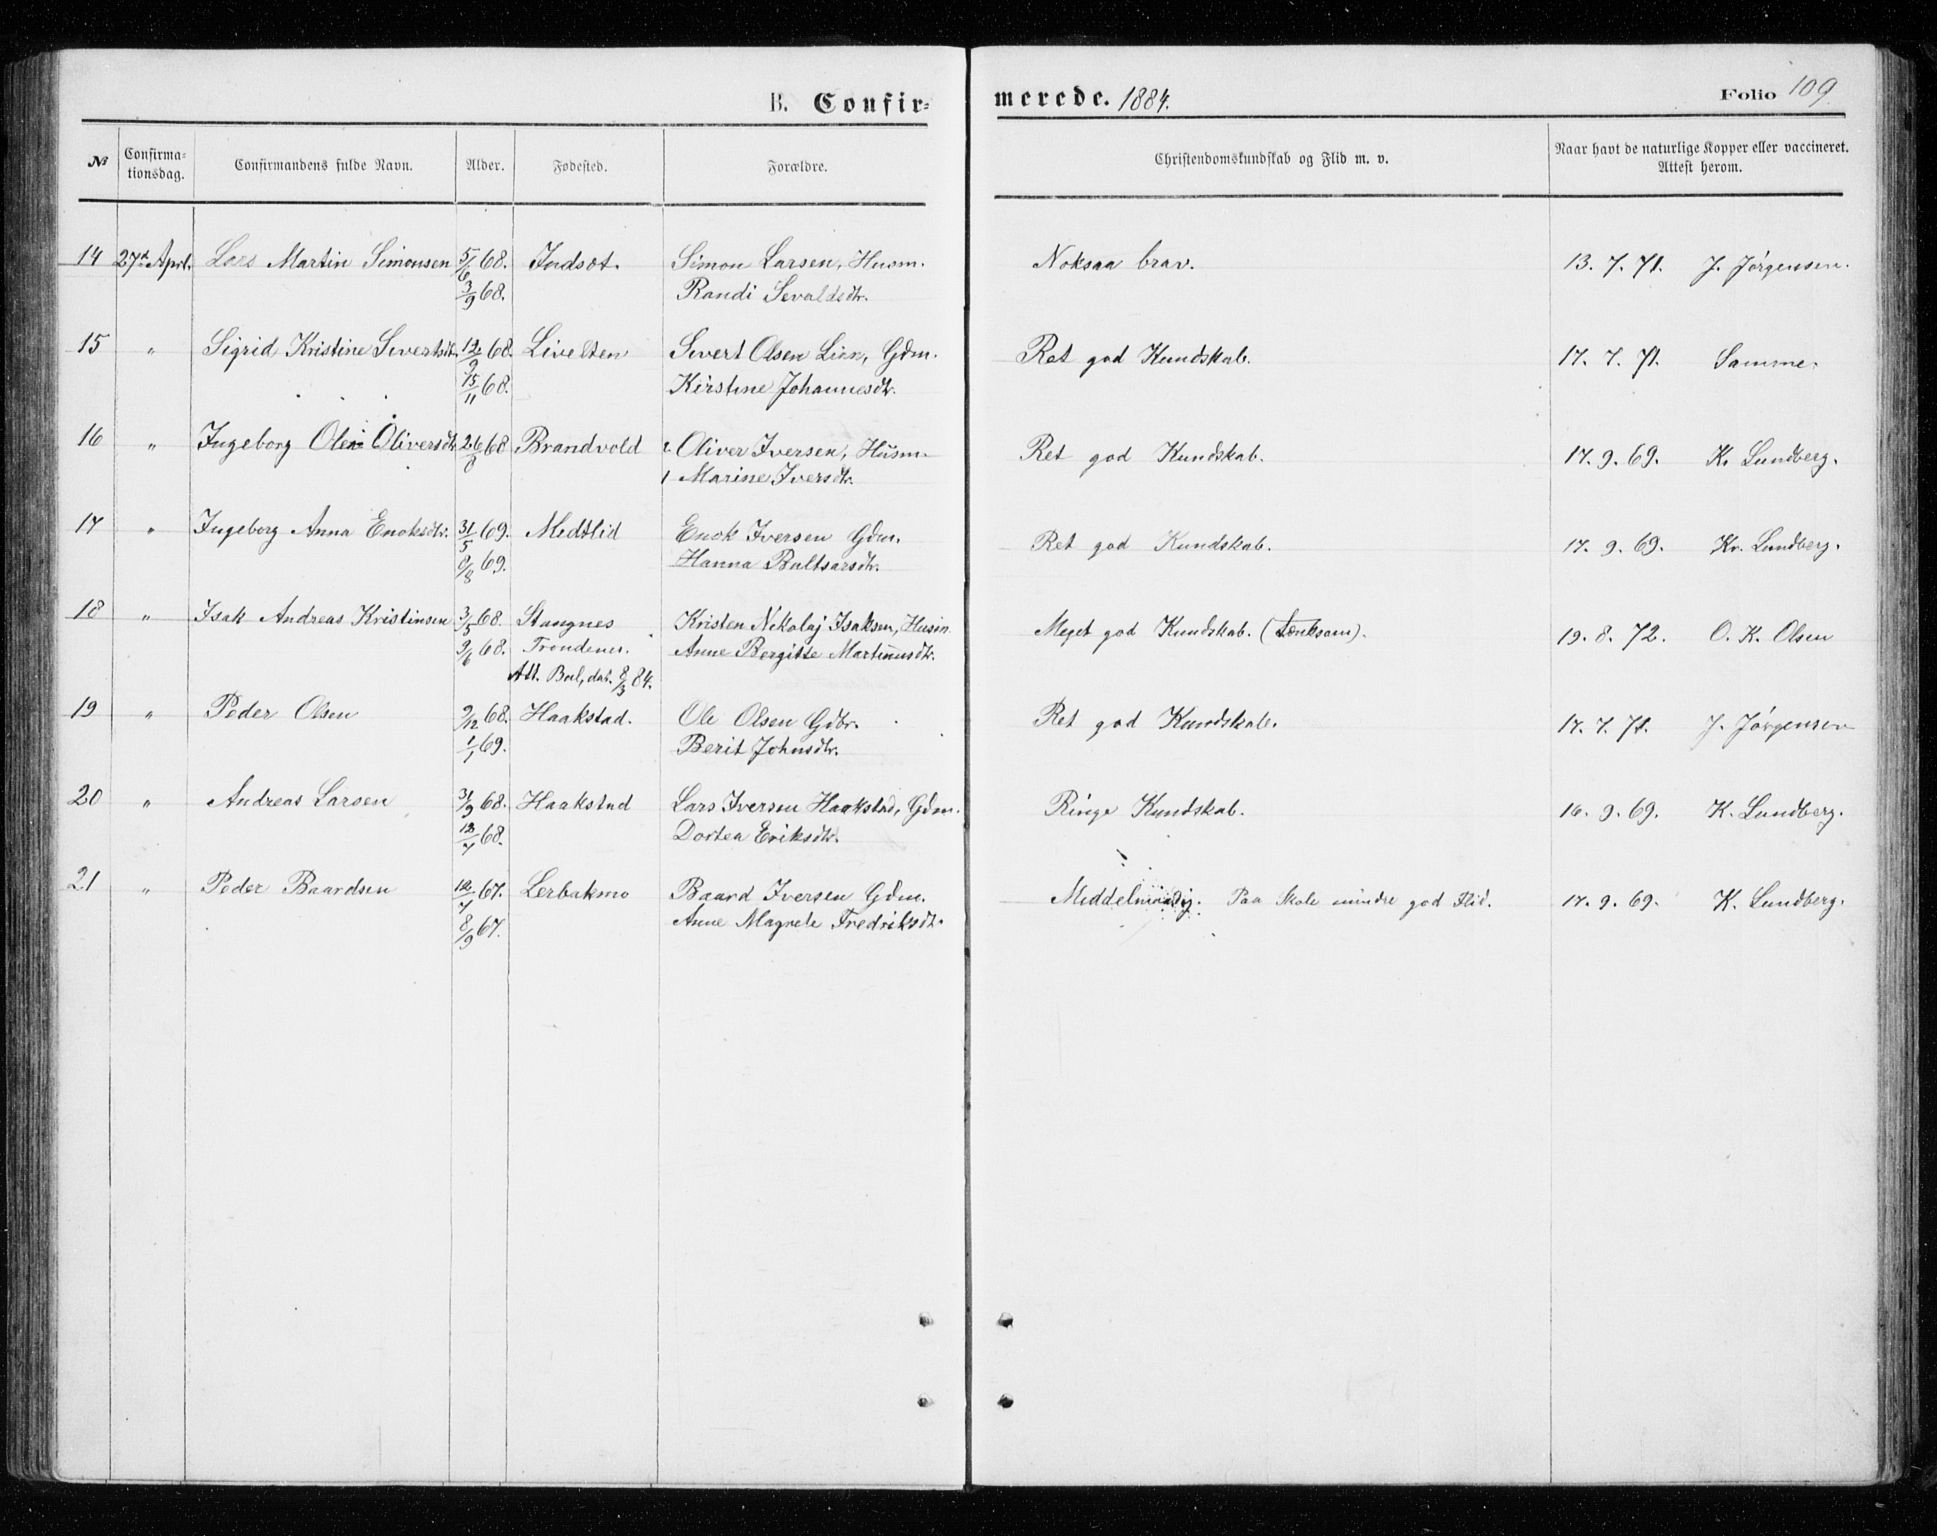 B. Confir= merede. 1884. Folio 109.
№ Confirma=tionsdag. Confirmandens fulde Navn. Alder. Fødested. Forældre. Christendomskundskab og Flid m. v. Naar havt de naturlige Kopper eller vaccineret. Attest herom.
14 27d April. Lars Martin Simonsen 5/6 68. Indset. Simon Larsen, Husm. Noksaa brav. 13. 7. 71. J. Jørgensen.
3/9 68. Randi Sevaldsdtr.
15 " Sigrid Kristine Sivertsdtr. 12/9 68. Livelten Sivert Olsen Lien, Gdm. Ret god Kundskab. 17. 7. 71. Samme.
15/11 68. Kirstine Johannesdtr.
16 " Ingeborg Oline Oliversdtr 26/8 68 Brandvold Oliver Iversen, Husm. Ret god Kundskab. 17. 9. 69. K. Lundberg.
Marine Iversdtr.
17 " Ingeborg Anna Enoksdtr. 31/5 69. Medtlid Enok Iversen Gdm. Ret god Kundskab. 17. 9. 69. Kr. Lundberg.
8/8 69. Hanna Baltsarsdtr.
18 " Isak Andreas Kristinsen 3/5 68. Stangnes Kristen Nikolaj Isaksen, Husm. Meget god Kundskab. (tænksom). 19. 8. 72. O. K. Olsen
9/6 68. Trondenes. Anne Bergitte Martinusdtr.
Att. Bal, dat. 8/3 84.
19 " Peder Olsen 9/12 68. Haakstad. Ole Olsen Gdbr. Ret god Kundskab. 17. 7. 71. J. Jørgensen
1/1 69. Berit Johnsdtr.
20 " Andreas Larsen 3/9 68. Haakstad Lars Iversen Haakstad, Gdm. Ringe Kundskab. 16. 9. 69. K. Lundberg.
12/7 68. Dortea Eriksdtr.
21 " Peder Baardsen 12/7 67. Lerbakmo Baard Iversen Gdm. Middelmaadig. Paa Skole mindre god Flid. 17. 9. 69. K. Lundberg.
8/9 67. Anne Magrete Fredriksdtr.